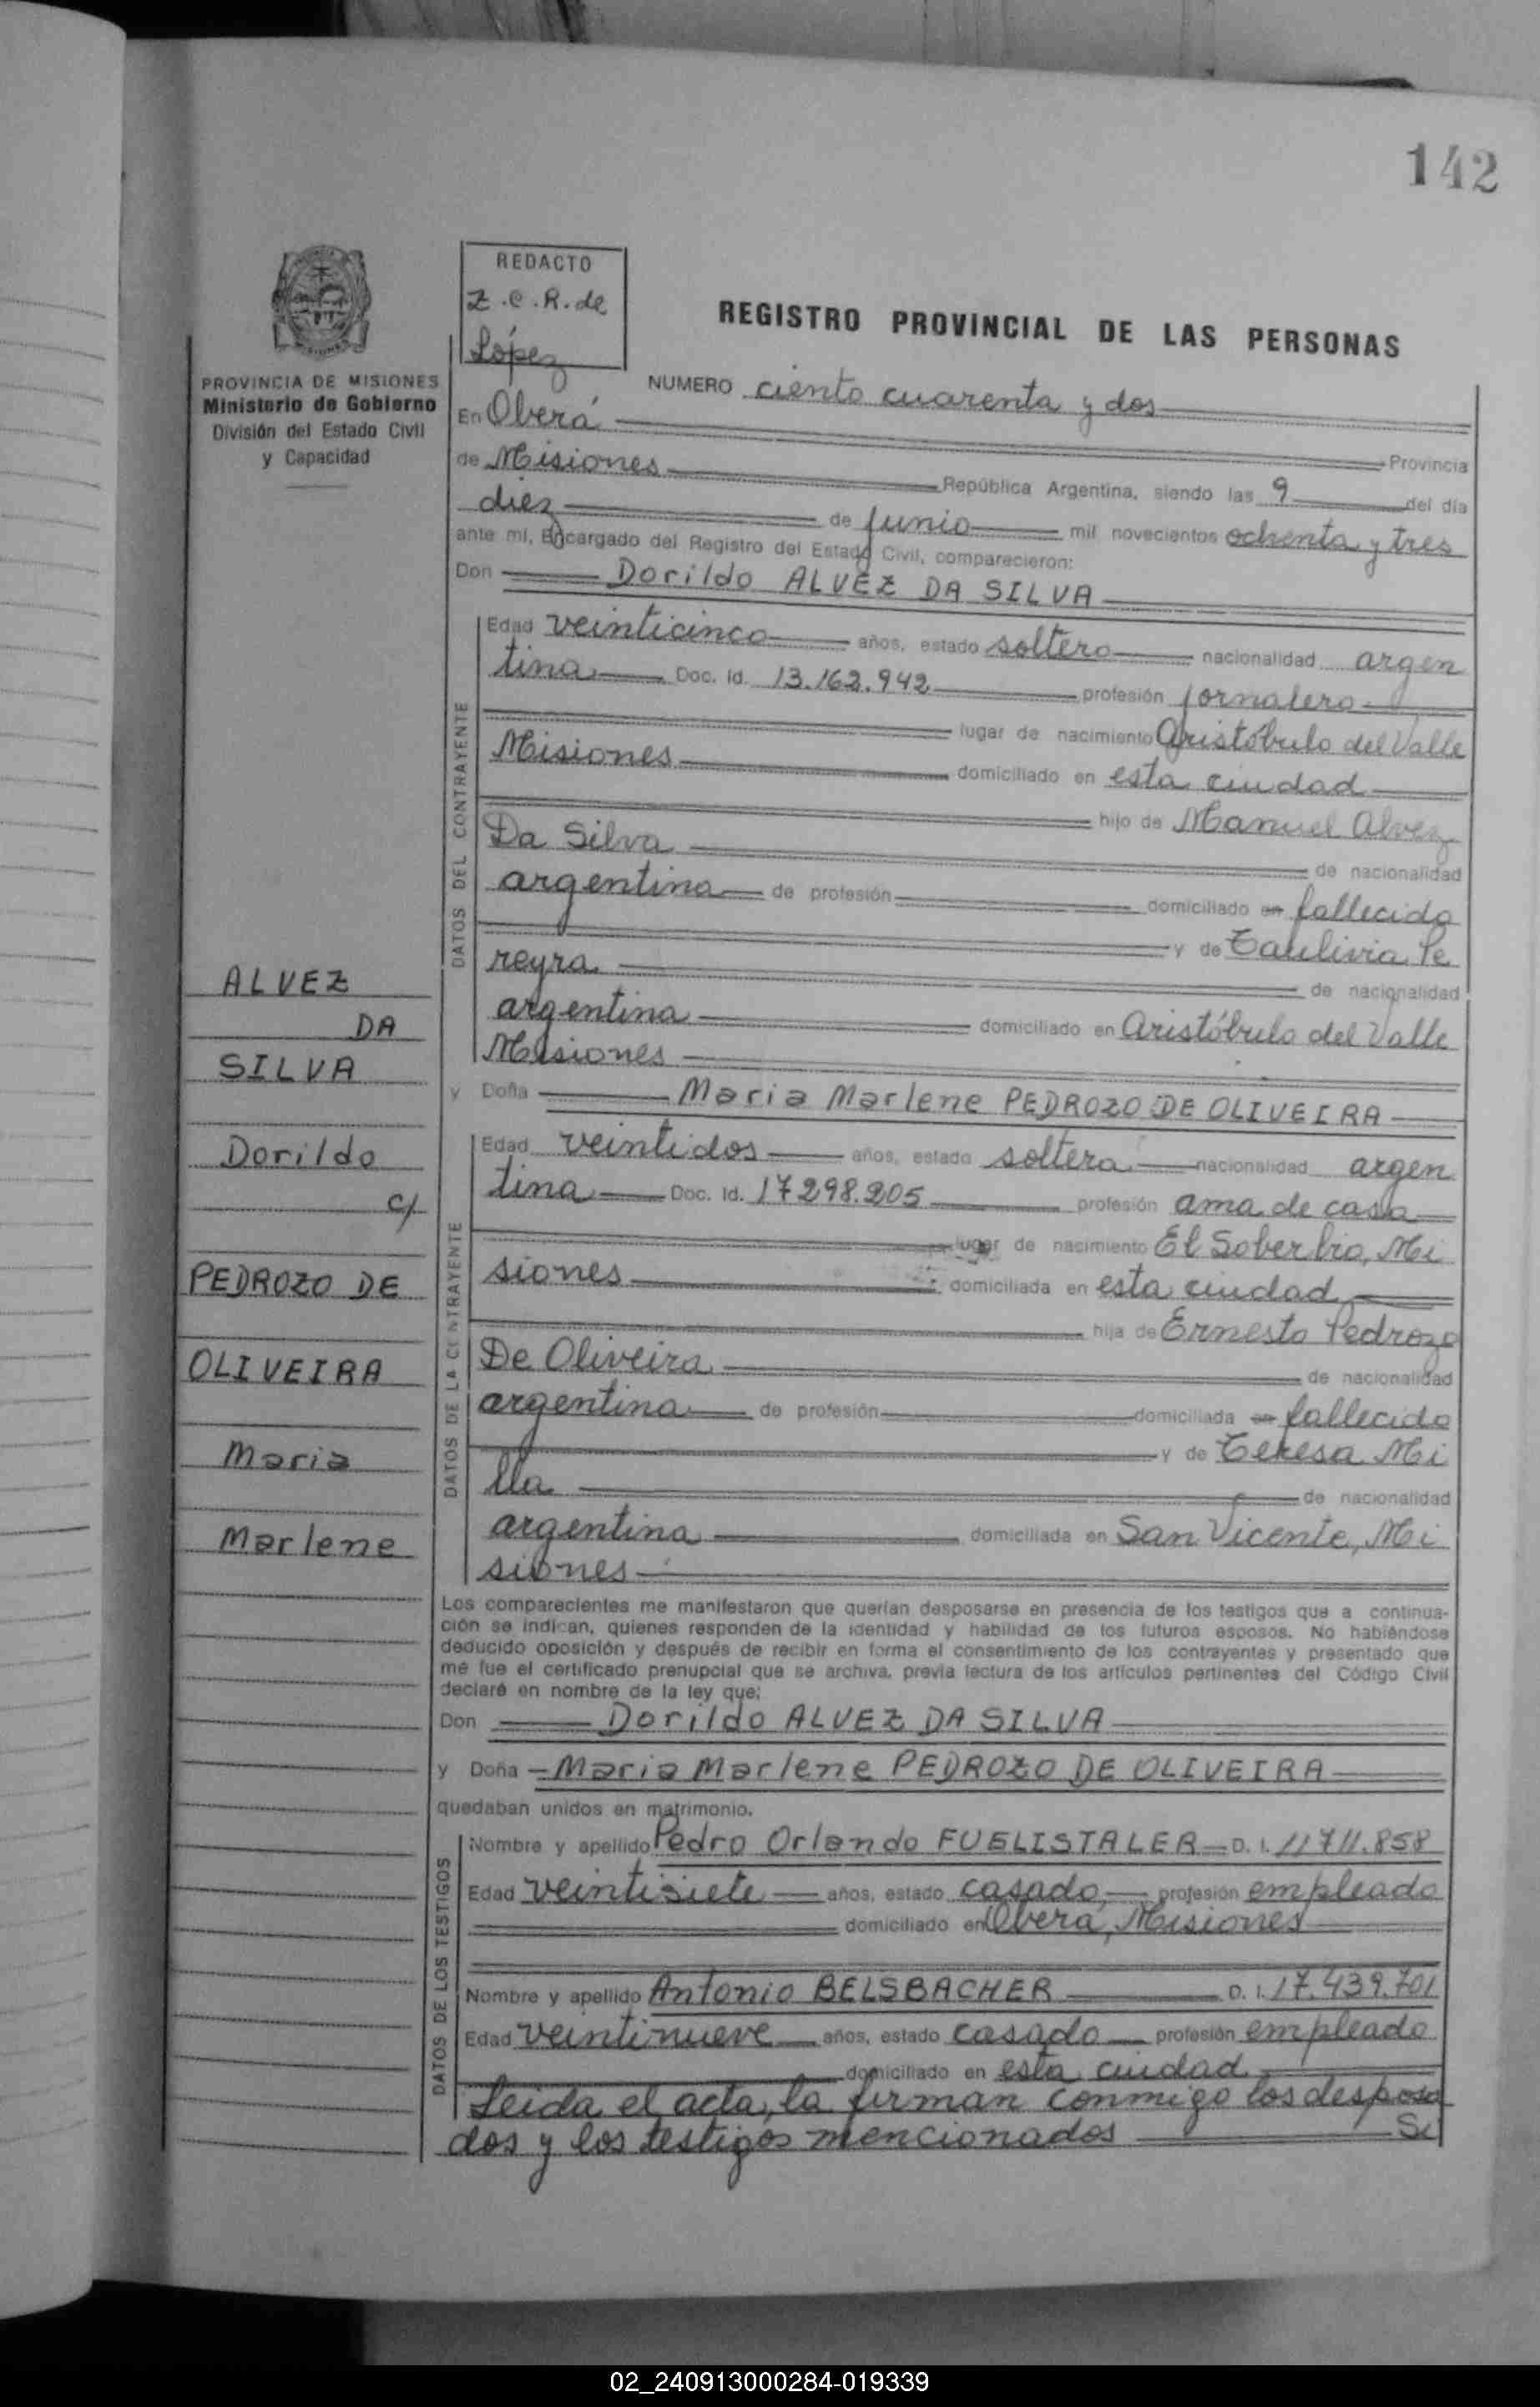 142
REDACTO
Z.C.R. de
López
REGISTRO PROVINCIAL DE LAS PERSONAS
PROVINCIA DE MISIONES
Ministerio de Gobierno
División del Estado Civil
y Capacidad
NUMERO ciento cuarenta y dos
En Oberá Provincia
de Misiones República Argentina, siendo las 9 del día
diez de Junio mil novecientos ochenta y tres
ante mí, Encargado del Registro del Estado Civil, comparecieron:
Don Dorildo ALVEZ DA SILVA
DATOS DEL CONTRAYENTE
Edad veinticinco años, estado soltero nacionalidad argen
tina Doc. Id. 13.162.942 profesión Jornalero
lugar de nacimiento Aristóbulo del Valle
Misiones domiciliado en esta ciudad
hijo de Manuel Alvez
Da Silva de nacionalidad
argentina de profesión domiciliado en fallecido
y de Pe
reyra de nacionalidad
argentina domiciliado en Aristóbulo del Valle
Misiones
y Doña Maria Marlene PEDROZO DE OLIVEIRA
DATOS DE LA CONTRAYENTE
Edad veintidos años, estado soltera nacionalidad argen
tina Doc. Id. 17298.205 profesión ama de casa
lugar de nacimiento El Soberbio, Mi
siones domiciliada en esta ciudad
hija de Ernesto Pedrozo
De Oliveira de nacionalidad
argentina de profesión domiciliada en fallecido
y de Teresa Mi
lla de nacionalidad
argentina domiciliada en San Vicente, Mi
siones
ALVEZ
DA
SILVA
Dorildo
c/
PEDROZO DE
OLIVEIRA
Maria
Marlene
Los comparecientes me manifestaron que querían desposarse en presencia de los testigos que a continua-
ción se indican, quienes responden de la identidad y habilidad de los futuros esposos. No habiéndose
deducido oposición y después de recibir en forma el consentimiento de los contrayentes y presentado que
me fue el certificado prenupcial que se archiva, previa lectura de los artículos pertinentes del Código Civil
declaré en nombre de la ley que:
Don Dorildo ALVEZ DA SILVA
y Doña Maria Marlene PEDROZO DE OLIVEIRA
quedaban unidos en matrimonio.
DATOS DE LOS TESTIGOS
Nombre y apellido Pedro Orlando FUELISTALER D. I. 11711.858
Edad veintisiete años, estado casado, profesión empleado
domiciliado en Oberá, Misiones
Nombre y apellido Antonio BELSBACHER D. I. 17.439.701
Edad veintinueve años, estado casado profesión empleado
domiciliado en esta ciudad
Leida el acta, la firman conmigo los desposa
dos y los testigos mencionados Si
02_240913000284-019339